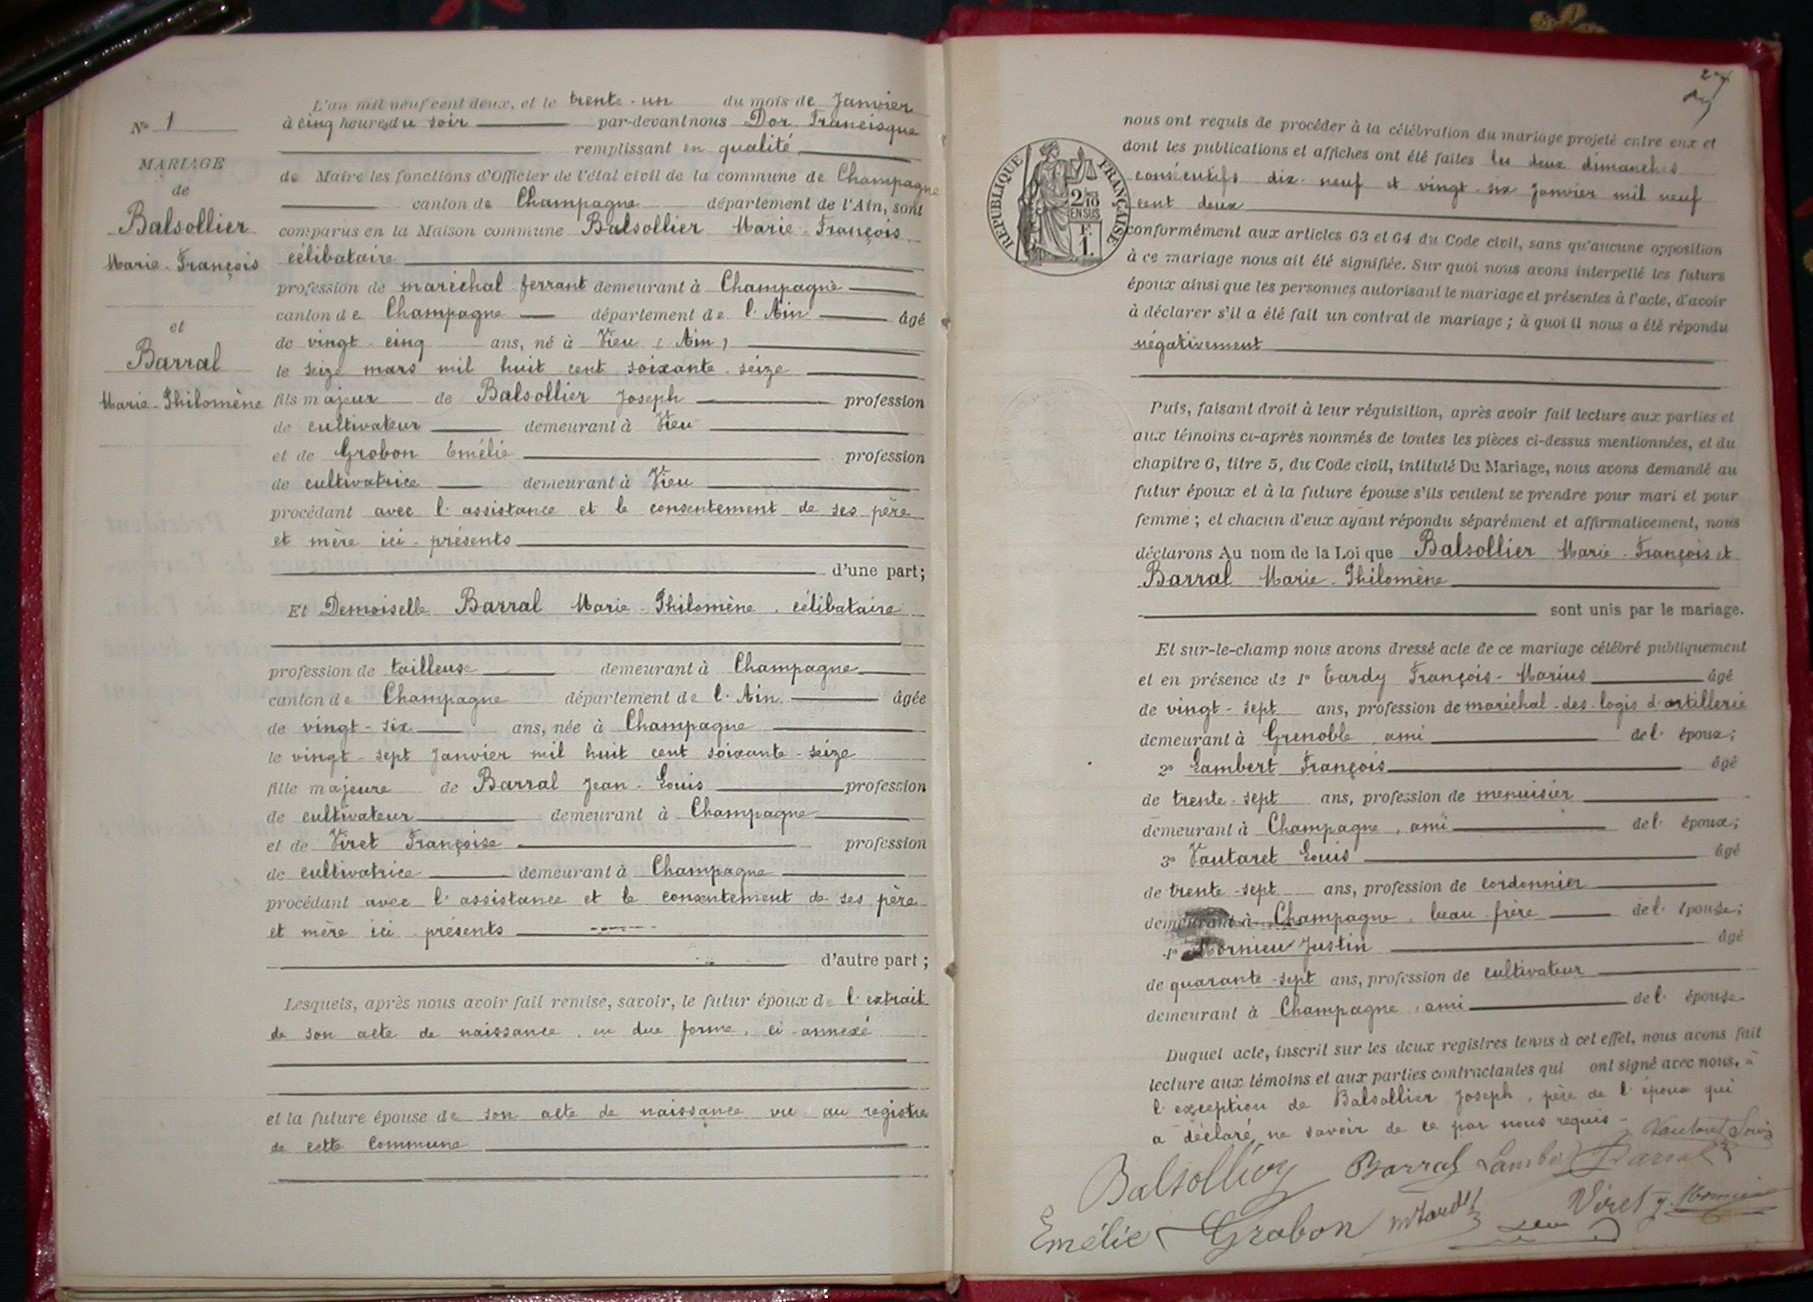 N° 1
MARIAGE
de
Balsollier
Marie-François
et
Barral
Marie-Philomène
L'an mil neuf cent deux, et le trente-un du mois de Janvier
à cinq heures du soir par-devant nous Dor Francisque
remplissant en qualité
de Maire les fonctions d'Officier de l'état civil de la commune de Champagne
canton de Champagne département de l'Ain, sont
comparus en la Maison commune Balsollier Marie-François
célibataire
profession de maréchal ferrant demeurant à Champagne
canton de Champagne département de l'Ain âgé
de vingt-cinq ans, né à Vieu (Ain)
le seize mars mil huit cent soixante-seize
fils majeur de Balsollier Joseph profession
de cultivateur demeurant à Vieu
et de Grobon Emélie profession
de cultivatrice demeurant à Vieu
procédant avec l'assistance et le consentement de ses père
et mère ici présents
d'une part;
Et Demoiselle Barral Marie-Philomène, célibataire
profession de tailleuse demeurant à Champagne
canton de Champagne département de l'Ain âgée
de vingt-six ans, née à Champagne
le vingt-sept Janvier mil huit cent soixante-seize
fille majeure de Barral Jean-Louis profession
de cultivateur demeurant à Champagne
et de Viret Françoise profession
de cultivatrice demeurant à Champagne
procédant avec l'assistance et le consentement de ses père
et mère ici présents
d'autre part;
Lesquels, après nous avoir fait remise, savoir, le futur époux de l'extrait
de son acte de naissance, en due forme, ci-annexé
et la future épouse de son acte de naissance vu au registre
de cette Commune
27
RÉPUBLIQUE FRANÇAISE
2/10
EN SUS
F.
1.
nous ont requis de procéder à la célébration du mariage projeté entre eux et
dont les publications et affiches ont été faites les deux dimanches
consécutifs dix-neuf et vingt-six Janvier mil neuf
cent deux
conformément aux articles 63 et 64 du Code civil, sans qu'aucune opposition
à ce mariage nous ait été signifiée. Sur quoi nous avons interpellé les futurs
époux ainsi que les personnes autorisant le mariage et présentes à l'acte, d'avoir
à déclarer s'il a été fait un contrat de mariage; à quoi il nous a été répondu
négativement
Puis, faisant droit à leur réquisition, après avoir fait lecture aux parties et
aux témoins ci-après nommés de toutes les pièces ci-dessus mentionnées, et du
chapitre 6, titre 5, du Code civil, intitulé Du Mariage, nous avons demandé au
futur époux et à la future épouse s'ils veulent se prendre pour mari et pour
femme; et chacun d'eux ayant répondu séparément et affirmativement, nous
déclarons Au nom de la Loi que Balsollier Marie-François et
Barral Marie-Philomène
sont unis par le mariage.
Et sur-le-champ nous avons dressé acte de ce mariage célébré publiquement
et en présence de 1° Tardy François-Marius âgé
de vingt-sept ans, profession de maréchal-des-logis d'artillerie
demeurant à Grenoble, ami de l'époux;
2° Lambert François âgé
de trente-sept ans, profession de menuisier
demeurant à Champagne, ami de l'époux;
3° Vautaret Louis âgé
de trente-sept ans, profession de cordonnier
demeurant à Champagne, beau-frère de l'épouse;
4° Mornieu Justin âgé
de quarante-sept ans, profession de cultivateur
demeurant à Champagne, ami de l'épouse
Duquel acte, inscrit sur les deux registres tenus à cet effet, nous avons fait
lecture aux témoins et aux parties contractantes qui ont signé avec nous, à
l'exception de Balsollier Joseph, père de l'époux qui
a déclaré ne savoir de ce par nous requis
Vautaret Louis
Balsollier Barral Lambert Barral
Emélie Grobon M Tardy Viret J. Mornieu